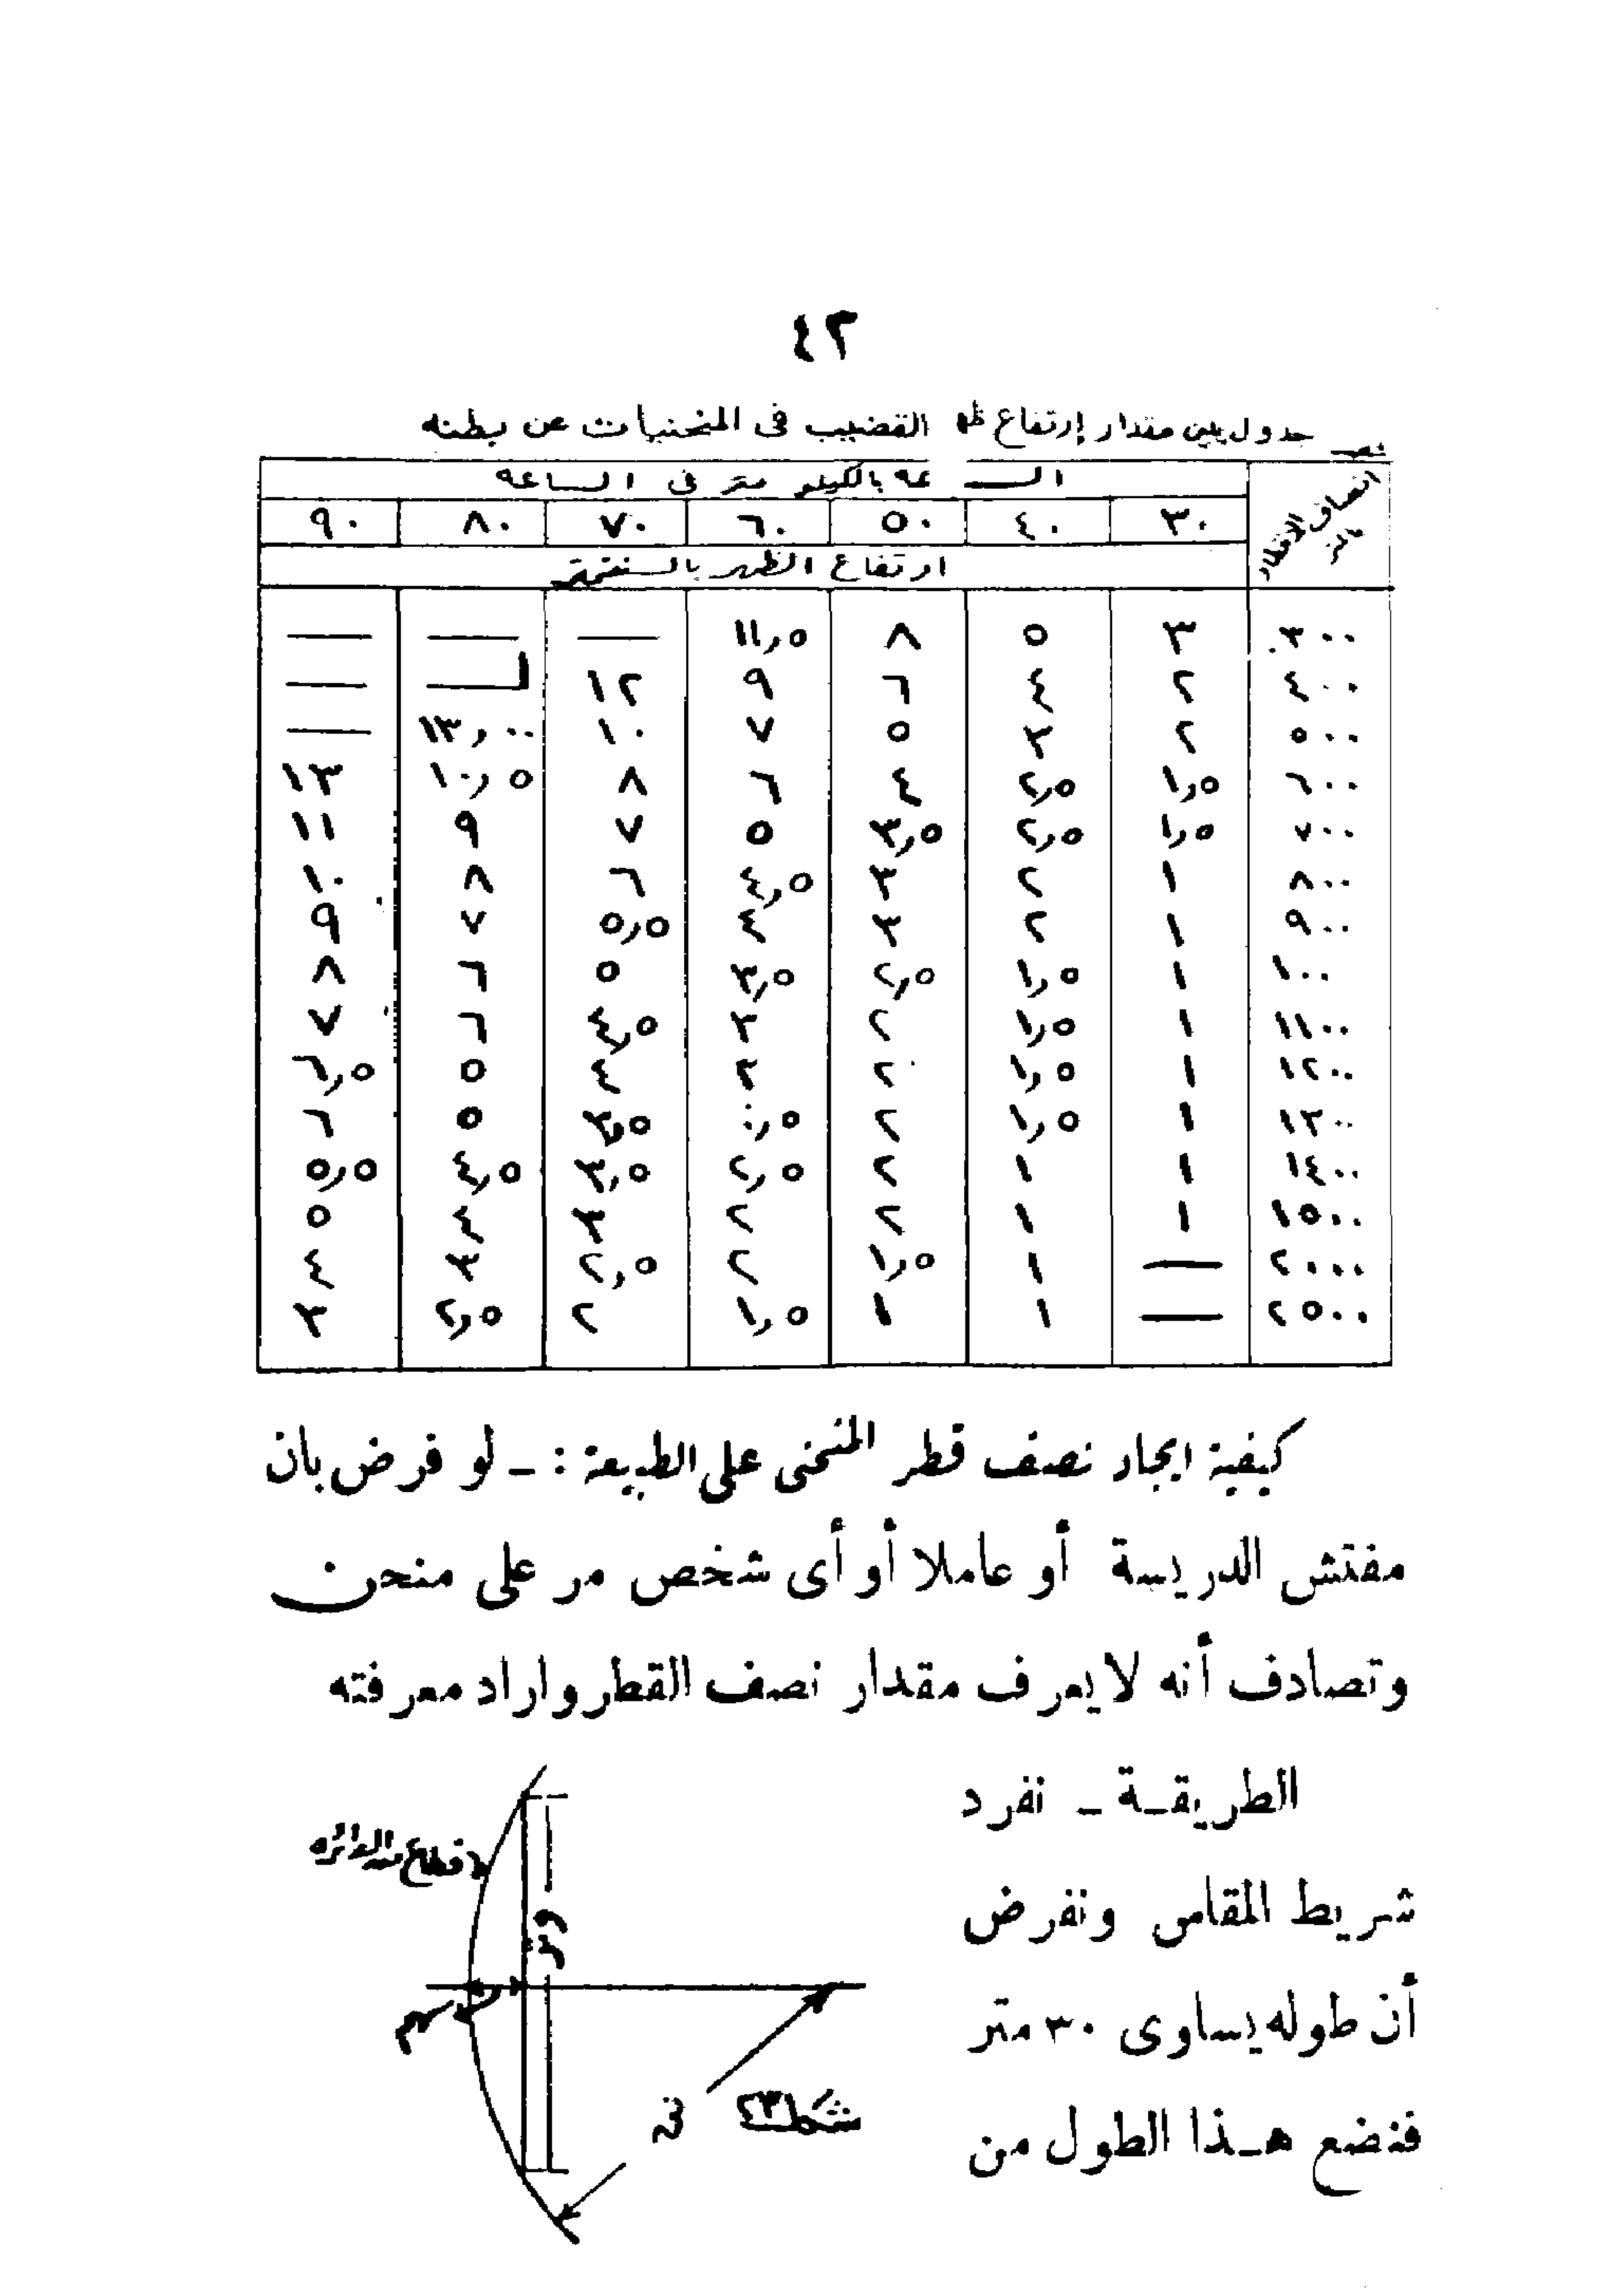 ٤٢
جدول يبين مقدار إرتفاع ظهر القضيب فى المنحنيات عن بطنه
أنصاف الأقطار بالمتر
السرعه بالكيلو متر فى الساعه
٣٠ ٤٠ ٥٠ ٦٠ ٧٠ ٨٠ ٩٠
ارتفاع الظهر بالسنتمتر
٣٠٠ ٣ ٥ ٨ ١١٫٥ — — —
٤٠٠ ٢ ٤ ٦ ٩ ١٢ — —
٥٠٠ ٢ ٣ ٥ ٧ ١٠ ١٣٫٠٠ —
٦٠٠ ١٫٥ ٢٫٥ ٤ ٦ ٨ ١٠٫٥ ١٣
٧٠٠ ١٫٥ ٢٫٥ ٣٫٥ ٥ ٧ ٩ ١١
٨٠٠ ١ ٢ ٣ ٤٫٥ ٦ ٨ ١٠
٩٠٠ ١ ٢ ٣ ٤ ٥٫٥ ٧ ٩
١٠٠ ١ ١٫٥ ٢٫٥ ٣٫٥ ٥ ٦ ٨
١١٠٠ ١ ١٫٥ ٢ ٣ ٤٫٥ ٦ ٧
١٢٠٠ ١ ١٫٥ ٢ ٣ ٤ ٥ ٦٫٥
١٣٠٠ ١ ١٫٥ ٢ ٣٫٥ ٥ ٦
١٤٠٠ ١ ١ ٢ ٢٫٥ ٣٫٥ ٤٫٥ ٥٫٥
١٥٠٠ ١ ١ ٢ ٢ ٣ ٤ ٥
٢٠٠٠ — ١ ١٫٥ ٢ ٢٫٥ ٣ ٤
٢٥٠٠ — ١ ١ ١٫٥ ٢ ٢٫٥ ٣
كيفية ايجاد نصف قطر المنحنى على الطبيعة : ـ لو فرض بان
مفتش الدريسة أو عاملا أو أى شخص مر على منحن
وتصادف أنه لا يعرف مقدار نصف القطر واراد معرفته
الطريقـة ـ نفرد
شريط المقاس ونفرض
أن طوله يساوى ٣٠ متر
فنضع هـذا الطول من
قطاع من الدائره
وتر
سهم
نق
شكل ٢٣